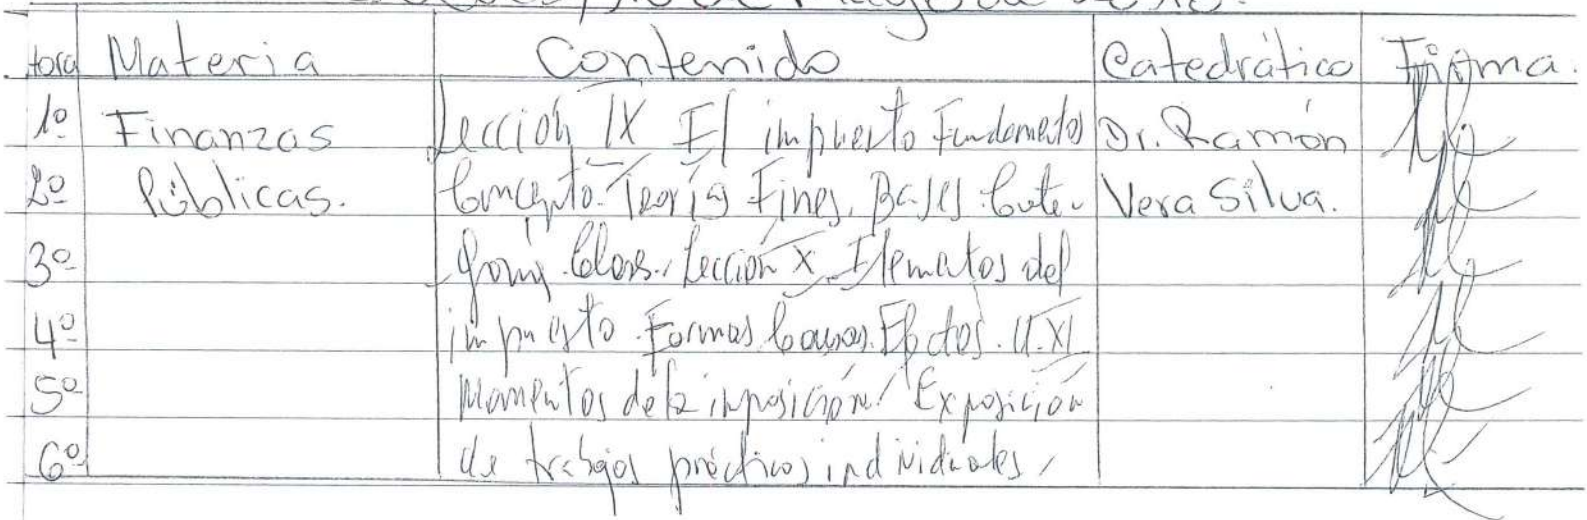 de Mayo de
Hora Materia Contenido Catedrático Firma.
1º Finanzas Lección IX El impuesto Fundamentos Dr. Ramón
2º Públicas. Concepto. Teorías Fines. Bases Cate- Vera Silva.
3º Lección X. Elementos del
4º impuesto. Formas Causas. Efectos. U.XI
5º Momentos de la imposición / Exposición
6º de trabajos prácticos individuales,